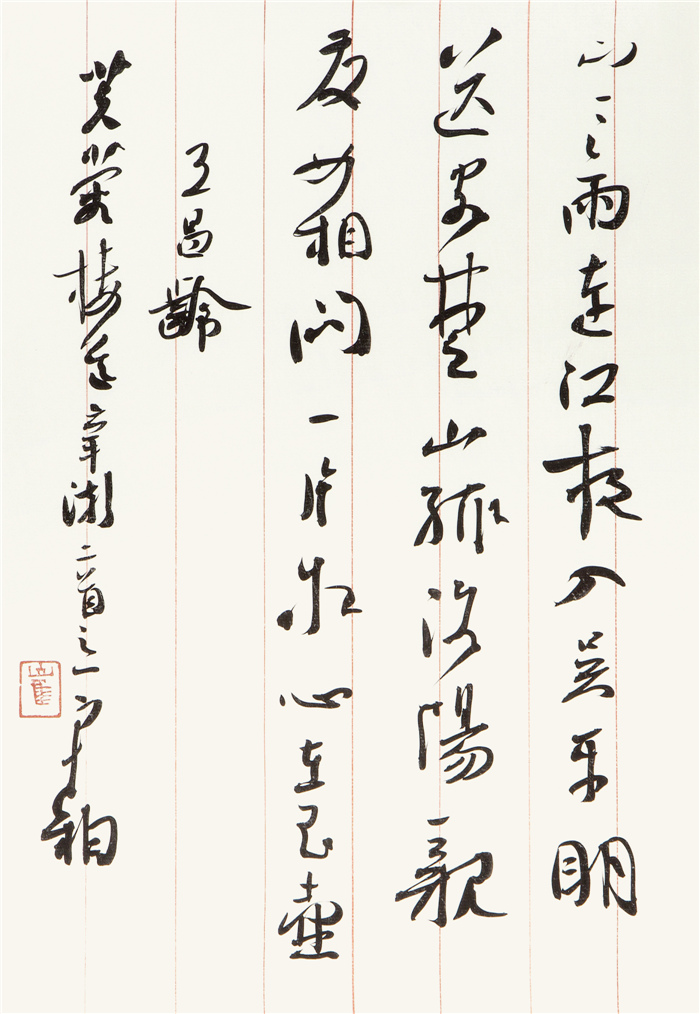 寒雨連江夜入吳平明
送客楚山孤洛陽親
友如相問一片冰心在玉壺
王昌齡
芙蓉樓送辛漸二首之一